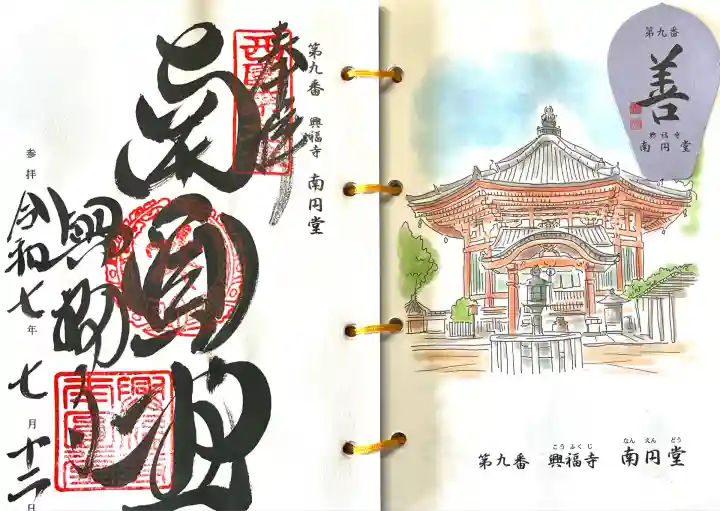 奉拝
第九番 興福寺 南円堂
南圓堂
興福寺
参拝 令和七年 七月 十二日
第九番
善
興福寺
南円堂
こうふくじ なんえんどう
第九番 興福寺 南円堂